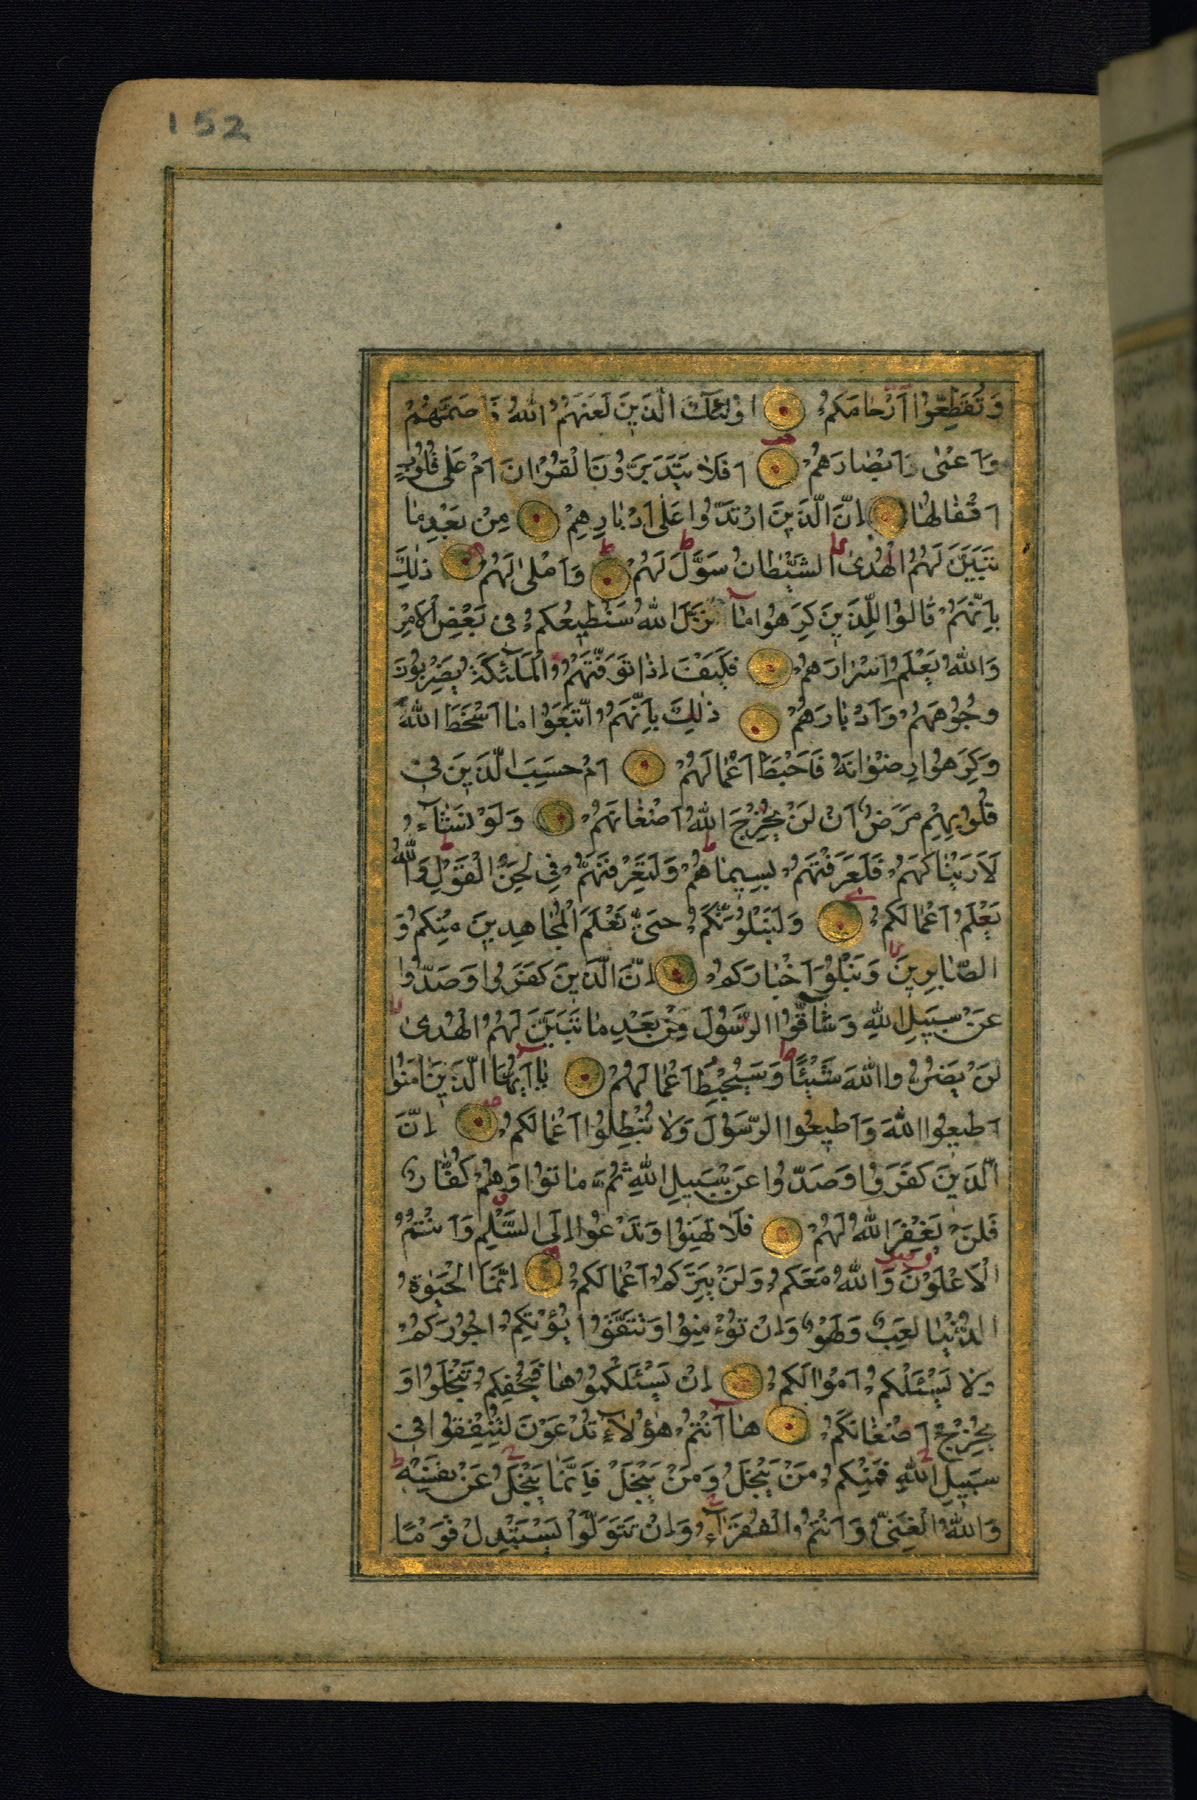 152
وَتُقَطِّعُوا أَرْحَامَكُمْ اُولٰئِكَ الَّذِينَ لَعَنَهُمُ اللهُ فَاَصَمَّهُمْ
وَاَعْمٰى اَبْصَارَهُمْ اَفَلَا يَتَدَبَّرُونَ الْقُرْاٰنَ اَمْ عَلٰى قُلُوبٍ
اَقْفَالُهَا اِنَّ الَّذِينَ ارْتَدُّوا عَلٰى اَدْبَارِهِمْ مِنْ بَعْدِ مَا
تَبَيَّنَ لَهُمُ الْهُدَىٰ الشَّيْطَانُ سَوَّلَ لَهُمْ وَاَمْلٰى لَهُمْ ذٰلِكَ
بِاَنَّهُمْ قَالُوا لِلَّذِينَ كَرِهُوا مَا نَزَّلَ اللهُ سَنُطِيعُكُمْ فِى بَعْضِ الْاَمْرِ
وَاللهُ يَعْلَمُ اِسْرَارَهُمْ فَكَيْفَ اِذَا تَوَفَّتْهُمُ الْمَلٰئِكَةُ يَضْرِبُونَ
وُجُوهَهُمْ وَاَدْبَارَهُمْ ذٰلِكَ بِاَنَّهُمُ اتَّبَعُوا مَا اَسْخَطَ اللهَ
وَكَرِهُوا رِضْوَانَهُ فَاَحْبَطَ اَعْمَالَهُمْ اَمْ حَسِبَ الَّذِينَ فِى
قُلُوبِهِمْ مَرَضٌ اَنْ لَنْ يُخْرِجَ اللهُ اَضْغَانَهُمْ وَلَوْ نَشَآءُ
لَاَرَيْنَاكَهُمْ فَلَعَرَفْتَهُمْ بِسِيمَاهُمْ وَلَتَعْرِفَنَّهُمْ فِى لَحْنِ الْقَوْلِ وَاللهُ
يَعْلَمُ اَعْمَالَكُمْ وَلَنَبْلُوَنَّكُمْ حَتّٰى نَعْلَمَ الْمُجَاهِدِينَ مِنْكُمْ وَ
الصَّابِرِينَ وَنَبْلُوَ اَخْبَارَكُمْ اِنَّ الَّذِينَ كَفَرُوا وَصَدُّوا
عَنْ سَبِيلِ اللهِ وَشَآقُّوا الرَّسُولَ مِنْ بَعْدِ مَا تَبَيَّنَ لَهُمُ الْهُدٰى
لَنْ يَضُرُّوا اللهَ شَيْئًا وَسَيُحْبِطُ اَعْمَالَهُمْ يَا اَيُّهَا الَّذِينَ اٰمَنُوا
اَطِيعُوا اللهَ وَاَطِيعُوا الرَّسُولَ وَلَا تُبْطِلُوا اَعْمَالَكُمْ اِنَّ
الَّذِينَ كَفَرُوا وَصَدُّوا عَنْ سَبِيلِ اللهِ ثُمَّ مَاتُوا وَهُمْ كُفَّارٌ
فَلَنْ يَغْفِرَ اللهُ لَهُمْ فَلَا تَهِنُوا وَتَدْعُوا اِلَى السَّلْمِ وَاَنْتُمُ
الْاَعْلَوْنَ وَاللهُ مَعَكُمْ وَلَنْ يَتِرَكُمْ اَعْمَالَكُمْ اِنَّمَا الْحَيٰوةُ
الدُّنْيَا لَعِبٌ وَلَهْوٌ وَاِنْ تُؤْمِنُوا وَتَتَّقُوا يُؤْتِكُمْ اُجُورَكُمْ
وَلَا يَسْئَلْكُمْ اَمْوَالَكُمْ اِنْ يَسْئَلْكُمُوهَا فَيُحْفِكُمْ تَبْخَلُوا وَ
يُخْرِجْ اَضْغَانَكُمْ هَا اَنْتُمْ هٰؤُلَآءِ تُدْعَوْنَ لِتُنْفِقُوا فِى
سَبِيلِ اللهِ فَمِنْكُمْ مَنْ يَبْخَلُ وَمَنْ يَبْخَلْ فَاِنَّمَا يَبْخَلُ عَنْ نَفْسِهِ
وَاللهُ الْغَنِىُّ وَاَنْتُمُ الْفُقَرَآءُ وَاِنْ تَتَوَلَّوْا يَسْتَبْدِلْ قَوْمًا